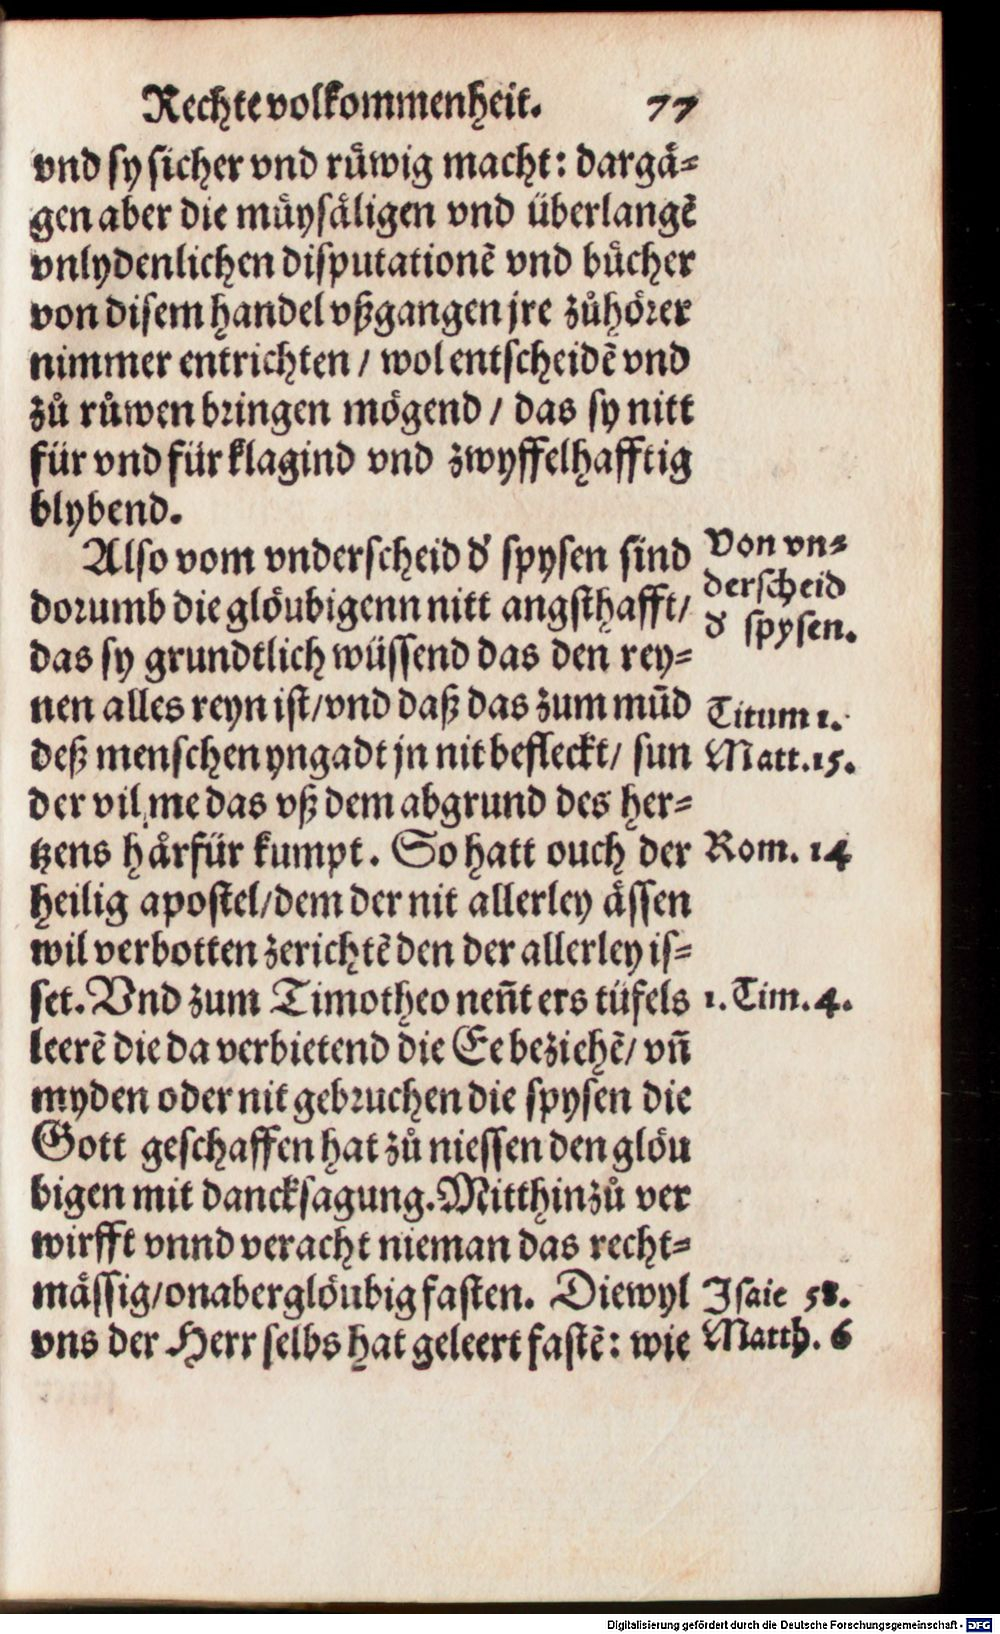 Rechte volkommenheit. 77
vnd sy sicher vnd růwig macht: dargå⸗
gen aber die můysåligen vnd überlangē
vnlydenlichen disputationē vnd bůcher
von disem handel vßgangen jre zůhörer
nimmer entrichten / wol entscheidē vnd
zů růwen bringen mögend / das sy nitt
für vnd für klagind vnd zwyffelhafftig
blybend.
Also vom vnderscheid d' spysen sind
dorumb die glöubigenn nitt angsthafft /
das sy grundtlich wüssend das den rey⸗
nen alles reyn ist / vnd daß das zum mūd
deß menschen yngadt jn nit befleckt / sun
der vil me das vß dem abgrund des her⸗
tzens hårfür kumpt. So hatt ouch der
heilig apostel / dem der nit allerley åssen
wil verbotten zerichtē den der allerley is⸗
set. Vnd zum Timotheo neñt ers tüfels
leerē die da verbietend die Ee beziehē / vñ
myden oder nit gebruchen die spysen die
Gott geschaffen hat zů niessen den glöu
bigen mit dancksagung. Mitthinzů ver
wirfft vnnd veracht nieman das recht⸗
måssig / onaberglöubig fasten. Diewyl
vns der Herr selbs hat geleert fastē: wie
Von vn⸗
derscheid
d' spysen.
Titum 1.
Matt. 15.
Rom. 14
1. Tim. 4.
Isaie 58.
Matth. 6
Digitalisierung gefördert durch die Deutsche Forschungsgemeinschaft - DFG